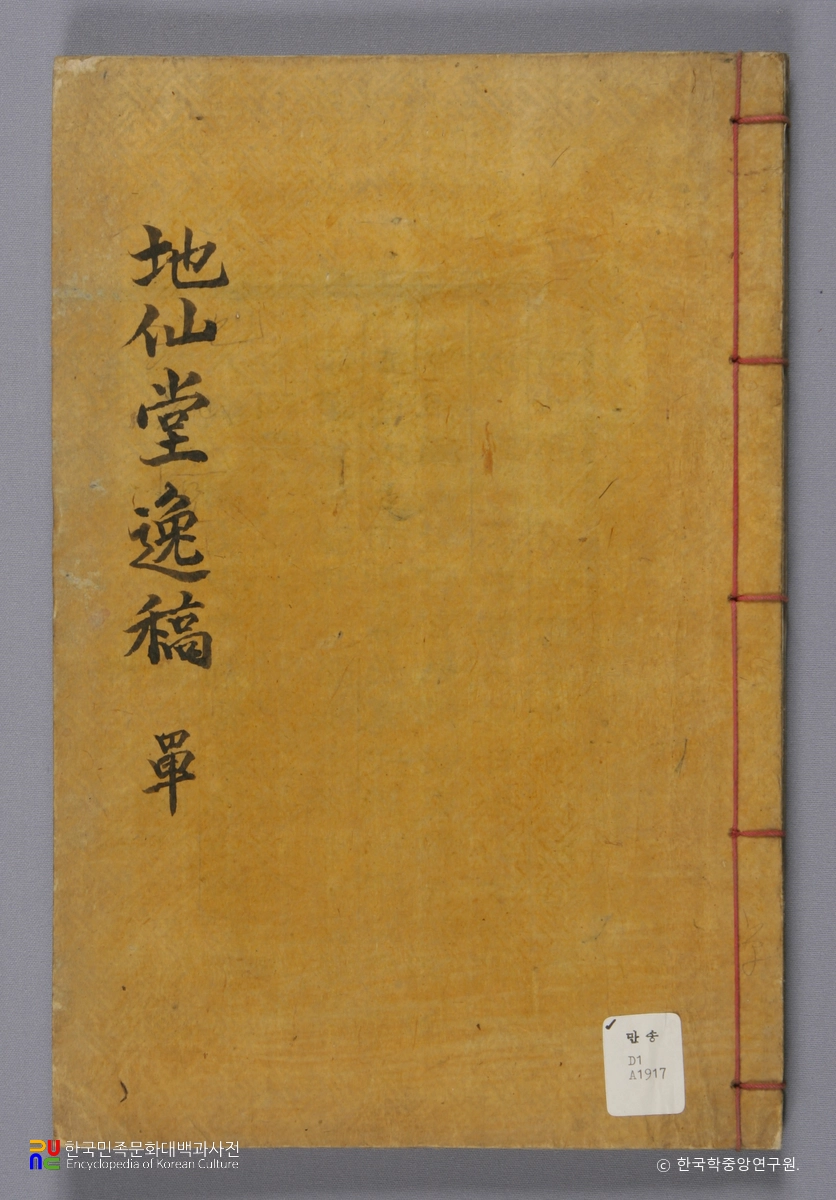 地仙堂逸稿 單
만송
D1
A1917
한국민족문화대백과사전
Encyclopedia of Korean Culture
ⓒ 한국학중앙연구원.